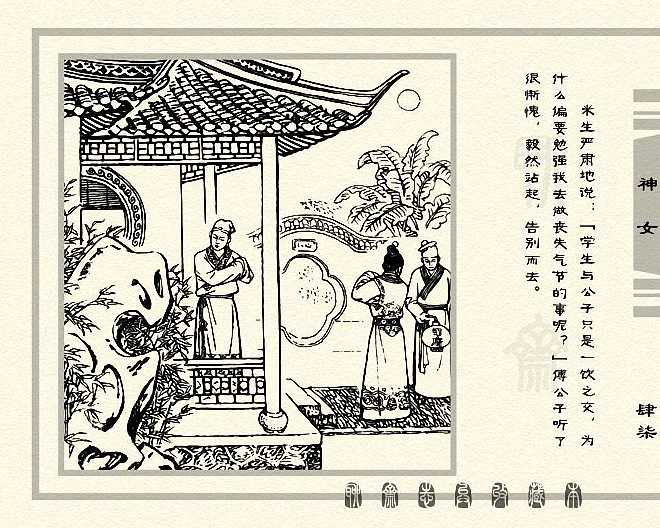 米生严肃地说：「学生与公子只是一饮之交，为
什么偏要勉强我去做丧失气节的事呢？」傅公子听了
很惭愧，毅然站起，告别而去。
神女
肆柒